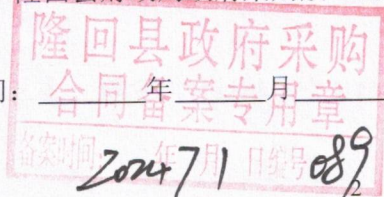 隆回县政府采购
:______年______月______
合同备案专用章
备案时间: 2024年7月1日编号089
2